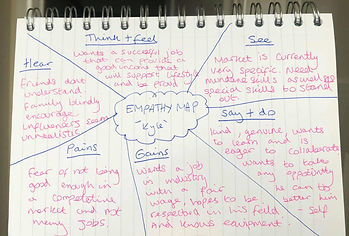 Think + feel
wants a successful job
that can provide a
good income that
will support lifestyle
and be proud
See
Market is currently
very specific. Needy
mundane skills as well as
special skills to stand
out.
Hear
Friends dont
understand
Family blindly
encourage
influencers seem
unrealistic
EMPATHY MAP
"Kyle"
Say + do
kind, genuine, wants
to learn and is
eager to collaborate
wants to take
any oppotinity
he can to
better him
- self
Pains
Fear of not being
good enough in
a competative
market and not
many jobs.
Gains
wants a job
in industry
with a fair
wage, hopes to be
respected in his field
and knows equipment.